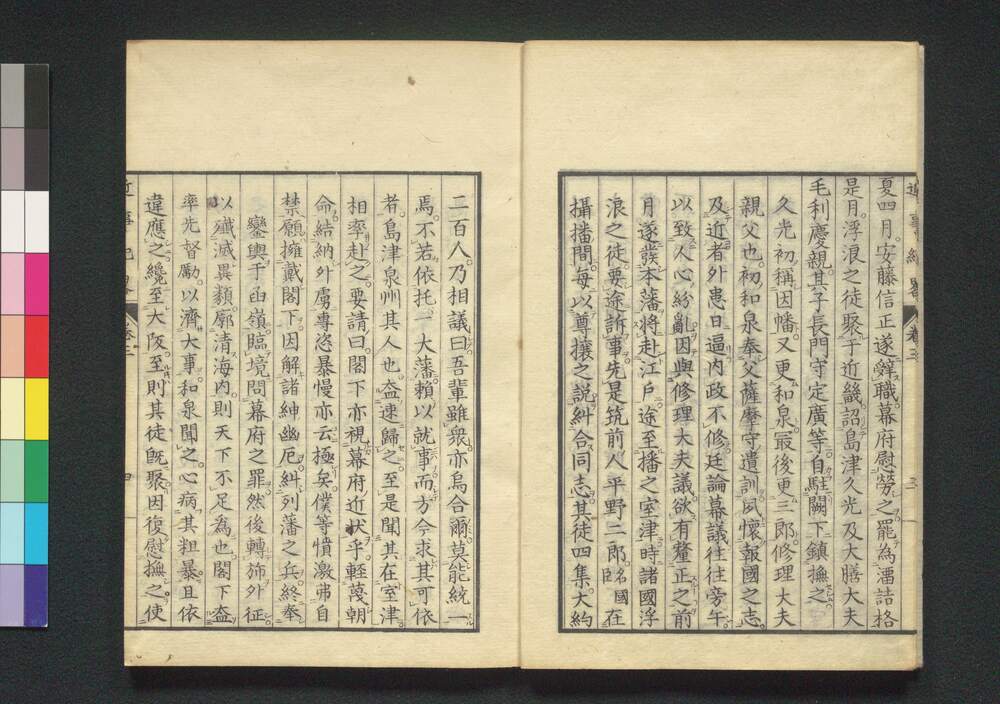 夏四月。安藤信正遂辭職幕府慰勞之罷為溜詰格
是月。浮浪之徒聚于近畿詔島津久光及大膳大夫
毛利慶親。其子長門守定廣等。自駐闕下鎮撫之
久光初稱因幡。又更和泉。最後更三郎。修理大夫
親父也。初和泉奉父薩摩守遺訓。夙懷報國之志。
及近者外患日逼內政不修。廷論幕議往往旁午
以致人心紛亂。因與修理大夫議欲有釐正之。前
月遂發本藩。將赴江戶。途至播之室津。時諸國浮
浪之徒。要途訴事。先是筑前人平野二郎名國臣在
攝播間。每以尊攘之說。糾合同志。其徒四集。大約
二百人。乃相議曰。吾輩雖衆。亦烏合爾。莫能統一
焉。不若依托一大藩。賴以就事。而方今求其可依
者。島津泉州其人也。盍速歸之。至是聞其在室津
相率赴之。要請曰。閣下亦視幕府近狀乎。輕蔑朝
命。結納外虜。專恣暴慢亦云極矣。僕等憤激弗自
禁。願擁戴閣下。因解諸紳幽厄。糾列藩之兵。終奉
鑾輿于函嶺。臨境問幕府之罪。然後轉旆外征
以殲滅異類。廓清海內。則天下不足為也。閣下盍
率先督勵。以濟大事。和泉聞之。心病其粗暴。且依
違應之。纔至大阪。至則其徒既聚。因復慰撫之。使
近事紀畧 卷三 三
近事紀畧 卷三 四